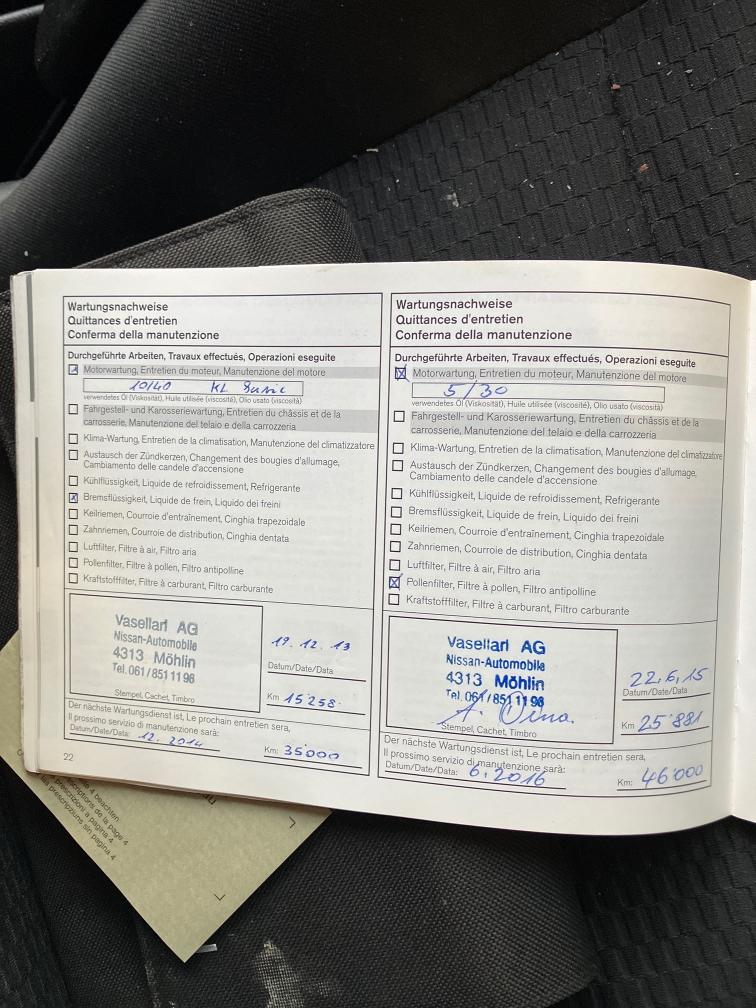 Wartungsnachweise
Quittances d'entretien
Conferma della manutenzione
Durchgeführte Arbeiten, Travaux effectués, Operazioni eseguite
Motorwartung, Entretien du moteur, Manutenzione del motore
10/40 KL
verwendetes Öl (Viskosität), Huile utilisée (viscosité), Olio usato (viscosità)
Fahrgestell- und Karosseriewartung, Entretien du châssis et de la
carrosserie, Manutenzione del telaio e della carrozzeria
Klima-Wartung, Entretien de la climatisation, Manutenzione del climatizzatore
Austausch der Zündkerzen, Changement des bougies d'allumage,
Cambiamento delle candele d'accensione
Kühlflüssigkeit, Liquide de refroidissement, Refrigerante
Bremsflüssigkeit, Liquide de frein, Liquido dei freini
Keilriemen, Courroie d'entraînement, Cinghia trapezoidale
Zahnriemen, Courroie de distribution, Cinghia dentata
Luftfilter, Filtre à air, Filtro aria
Pollenfilter, Filtre à pollen, Filtro antipolline
Kraftstofffilter, Filtre à carburant, Filtro carburante
Vasellari AG
Nissan-Automobile
4313 Möhlin
Tel. 061/851 11 98
Stempel, Cachet, Timbro
19.12.13
Datum/Date/Data
Km 15'258.
Der nächste Wartungsdienst ist, Le prochain entretien sera,
Il prossimo servizio di manutenzione sarà:
Datum/Date/Data: 12.2014 Km: 35'000
22
Wartungsnachweise
Quittances d'entretien
Conferma della manutenzione
Durchgeführte Arbeiten, Travaux effectués, Operazioni eseguite
Motorwartung, Entretien du moteur, Manutenzione del motore
5/30
verwendetes Öl (Viskosität), Huile utilisée (viscosité), Olio usato (viscosità)
Fahrgestell- und Karosseriewartung, Entretien du châssis et de la
carrosserie, Manutenzione del telaio e della carrozzeria
Klima-Wartung, Entretien de la climatisation, Manutenzione del climatizzatore
Austausch der Zündkerzen, Changement des bougies d'allumage,
Cambiamento delle candele d'accensione
Kühlflüssigkeit, Liquide de refroidissement, Refrigerante
Bremsflüssigkeit, Liquide de frein, Liquido dei freini
Keilriemen, Courroie d'entraînement, Cinghia trapezoidale
Zahnriemen, Courroie de distribution, Cinghia dentata
Luftfilter, Filtre à air, Filtro aria
Pollenfilter, Filtre à pollen, Filtro antipolline
Kraftstofffilter, Filtre à carburant, Filtro carburante
Vasellari AG
Nissan-Automobile
4313 Möhlin
Tel. 061/851 11 98
Stempel, Cachet, Timbro
22.6.15
Datum/Date/Data
Km 25'881
Der nächste Wartungsdienst ist, Le prochain entretien sera,
Il prossimo servizio di manutenzione sarà:
Datum/Date/Data: 6.2016 Km: 46'000
4 beachten
prescriptions de la page 4
prescrizioni a pagina 4
prescripziuns sin pagina 4